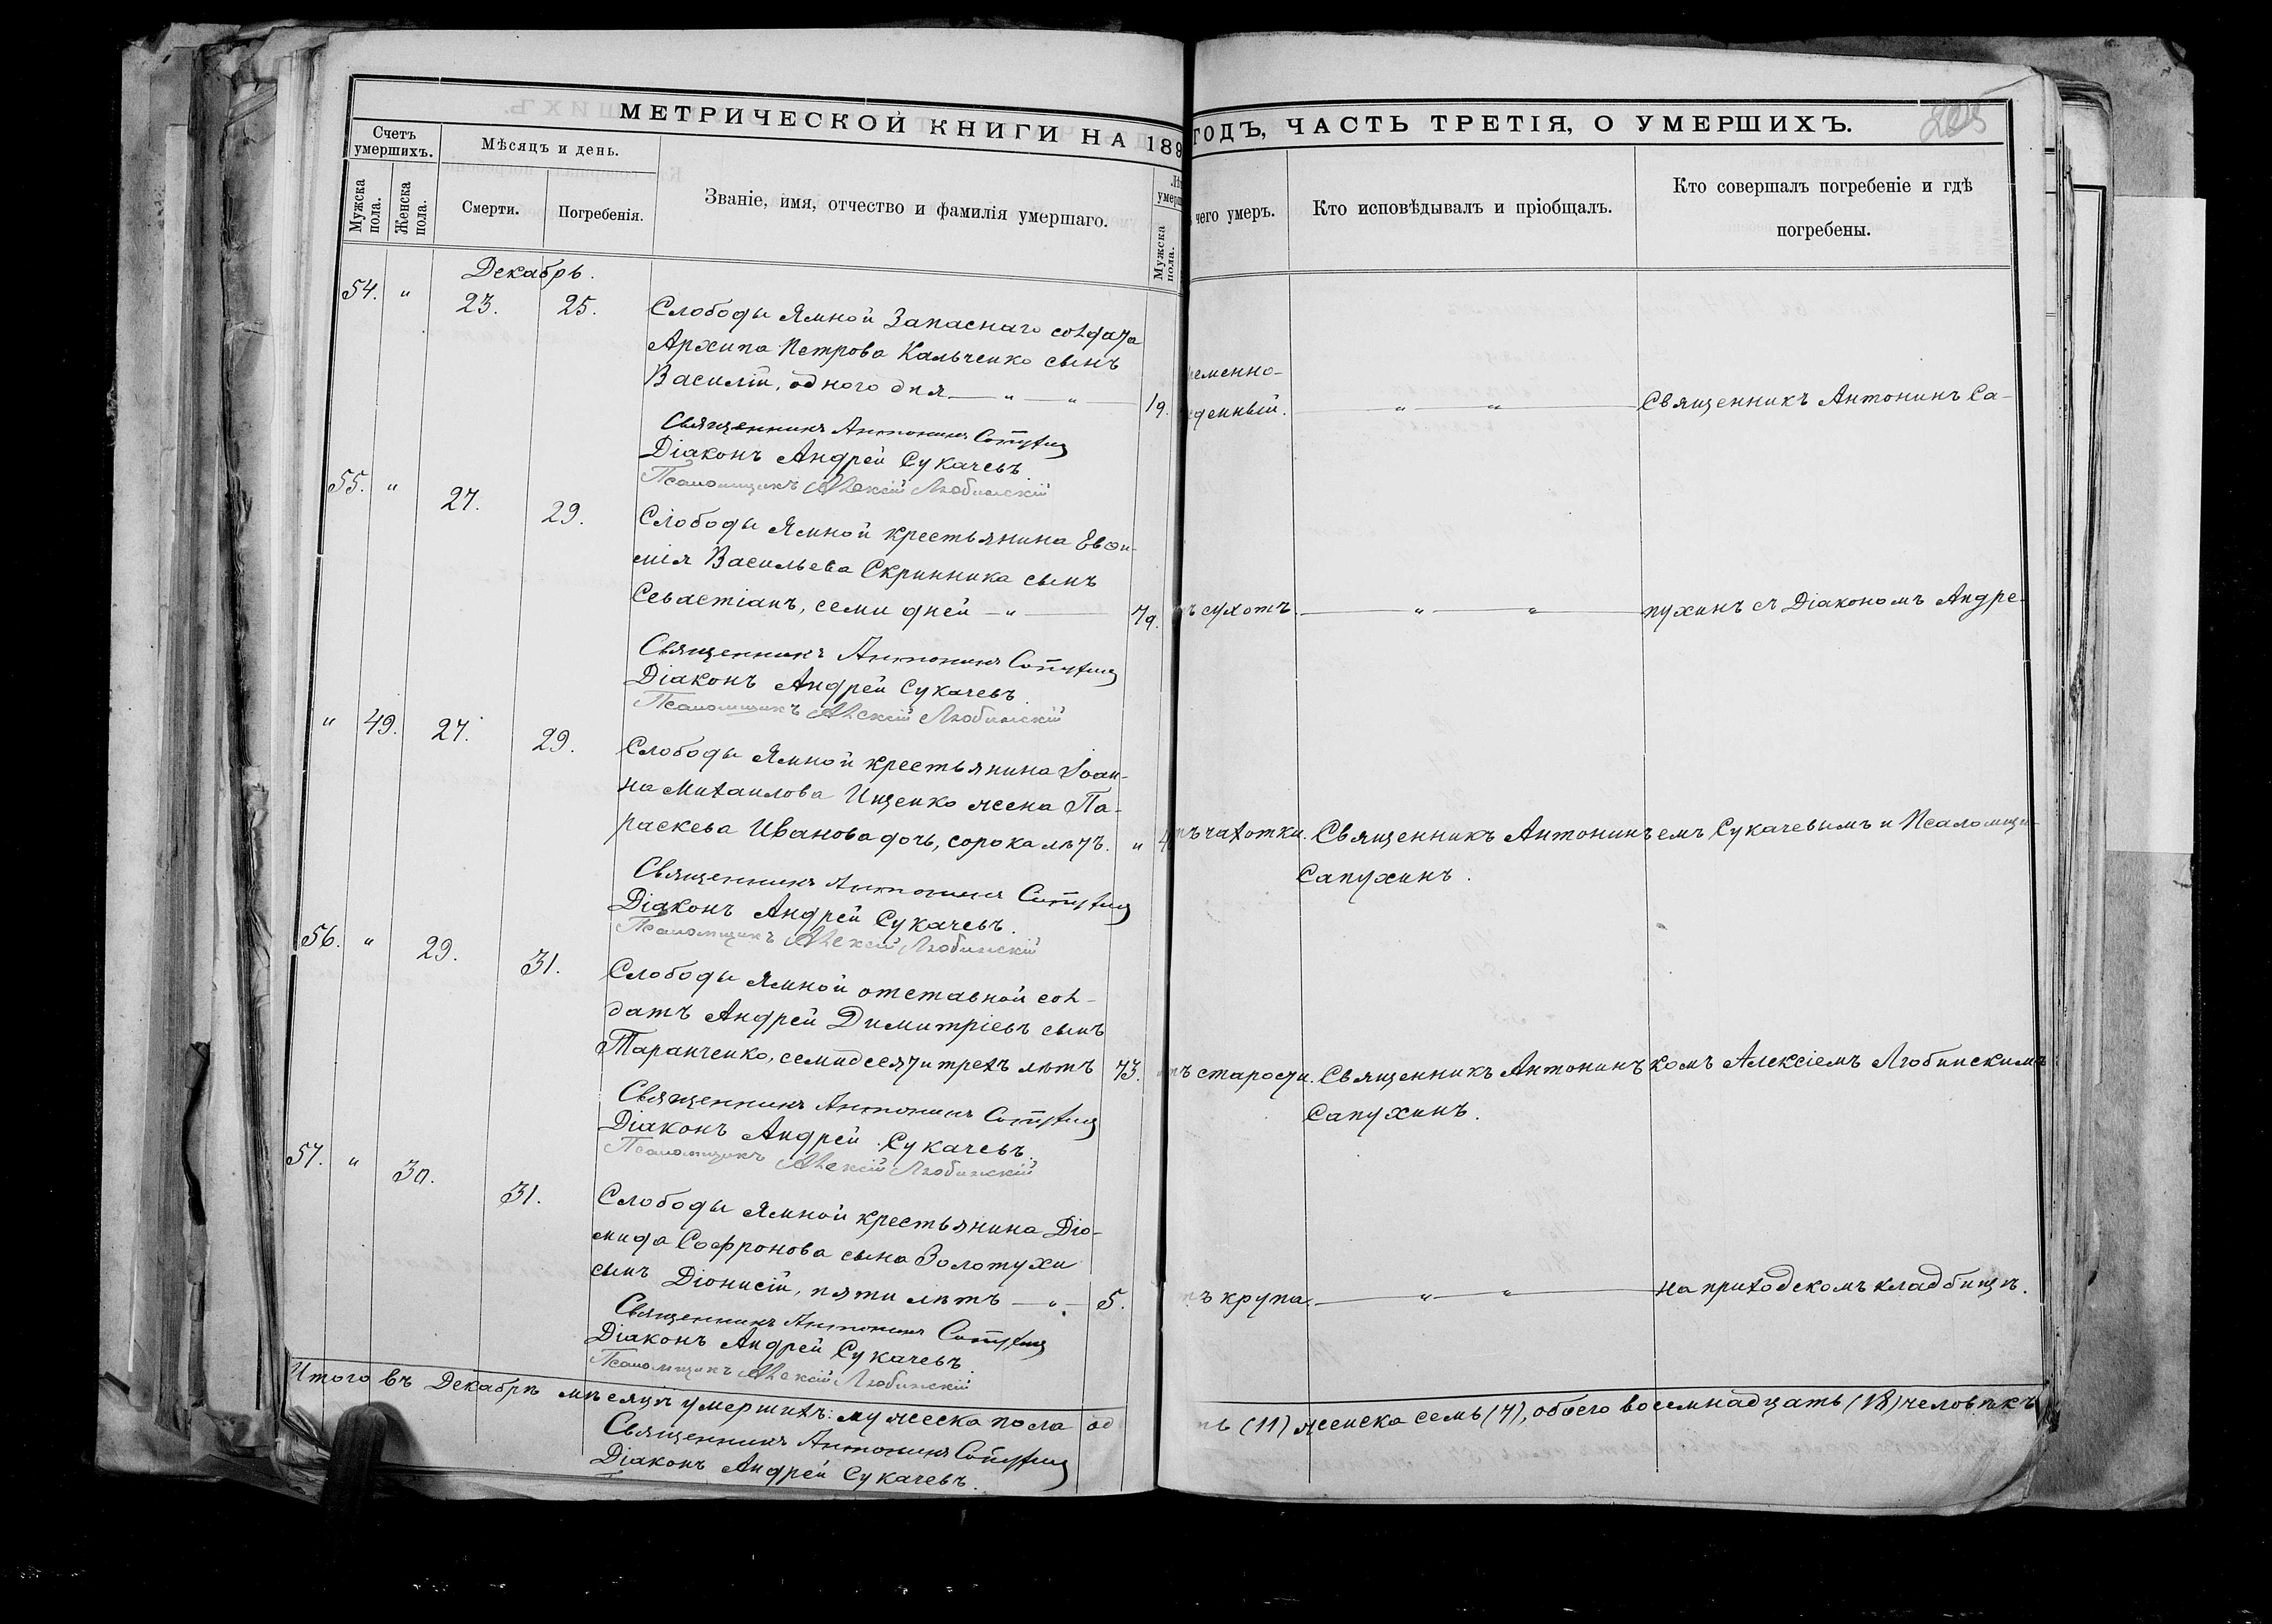 МЕТРИЧЕСКОЙ КНИГИ НА 189
ГОДЪ, ЧАСТЬ ТРЕТІЯ, О УМЕРШИХЪ.
Счетъ умершихъ.
Мужска пола.
Женска пола.
Мѣсяцъ и день.
Смерти.
Погребенія.
Званіе, имя, отчество и фамилія умершаго.
Мужска пола.
чего умеръ.
Кто исповѣдывалъ и пріобщалъ.
Кто совершалъ погребеніе и гдѣ
погребены.
Декабрь.
54. " 23. 25.
Слободы Ямной Запаснаго солдата
Архипа Петрова Кальченко сынъ
Василій, одного дня — " — " — 1д.
еменно-
денный. — " — " — Священникъ Антонинъ Са-
Священникъ Антонинъ Сапухинъ
Діаконъ Андрей Сукачевъ.
Псаломщикъ Алексій Любинскій
55. " 27. 29.
Слободы Ямной крестьянина Евѳи-
мія Васильева Скринника сынъ
Севастіанъ, семи дней — " — 7д.
ъ сухотъ. — " — " — пухинъ съ Діакономъ Андре-
Священникъ Антонинъ Сапухинъ
Діаконъ Андрей Сукачевъ.
Псаломщикъ Алексій Любинскій
" 49. 27. 29.
Слободы Ямной крестьянина Іоан-
на Михаилова Ищенко жена Па-
раскева Иванова дочь, сорока лѣтъ. " 4
ъ чахотки. Священникъ Антонинъ
Сапухинъ.
емъ Сукачевымъ и Псаломщи-
Священникъ Антонинъ Сапухинъ
Діаконъ Андрей Сукачевъ.
Псаломщикъ Алексій Любинскій
56. " 29. 31.
Слободы Ямной отставной сол-
датъ Андрей Димитріевъ сынъ
Таранченко, семидесяти трехъ лѣтъ 73.
ъ старости. Священникъ Антонинъ
Сапухинъ.
комъ Алексіемъ Любинскимъ
Священникъ Антонинъ Сапухинъ
Діаконъ Андрей Сукачевъ.
Псаломщикъ Алексій Любинскій
57. " 30. 31.
Слободы Ямной крестьянина Діо-
мида Софронова сына Золотухи
сынъ Діонисій, пяти лѣтъ — " — 5.
ъ крупа. — " — " — на приходскомъ кладбищѣ.
Священникъ Антонинъ Сапухинъ
Діаконъ Андрей Сукачевъ.
Псаломщикъ Алексій Любинскій
Итого въ Декабрѣ мѣсяцѣ умершихъ: мужеска пола од
ть (11) женска семь (7), обоего восемнадцать (18) человѣкъ
Священникъ Антонинъ Сапухинъ
Діаконъ Андрей Сукачевъ.